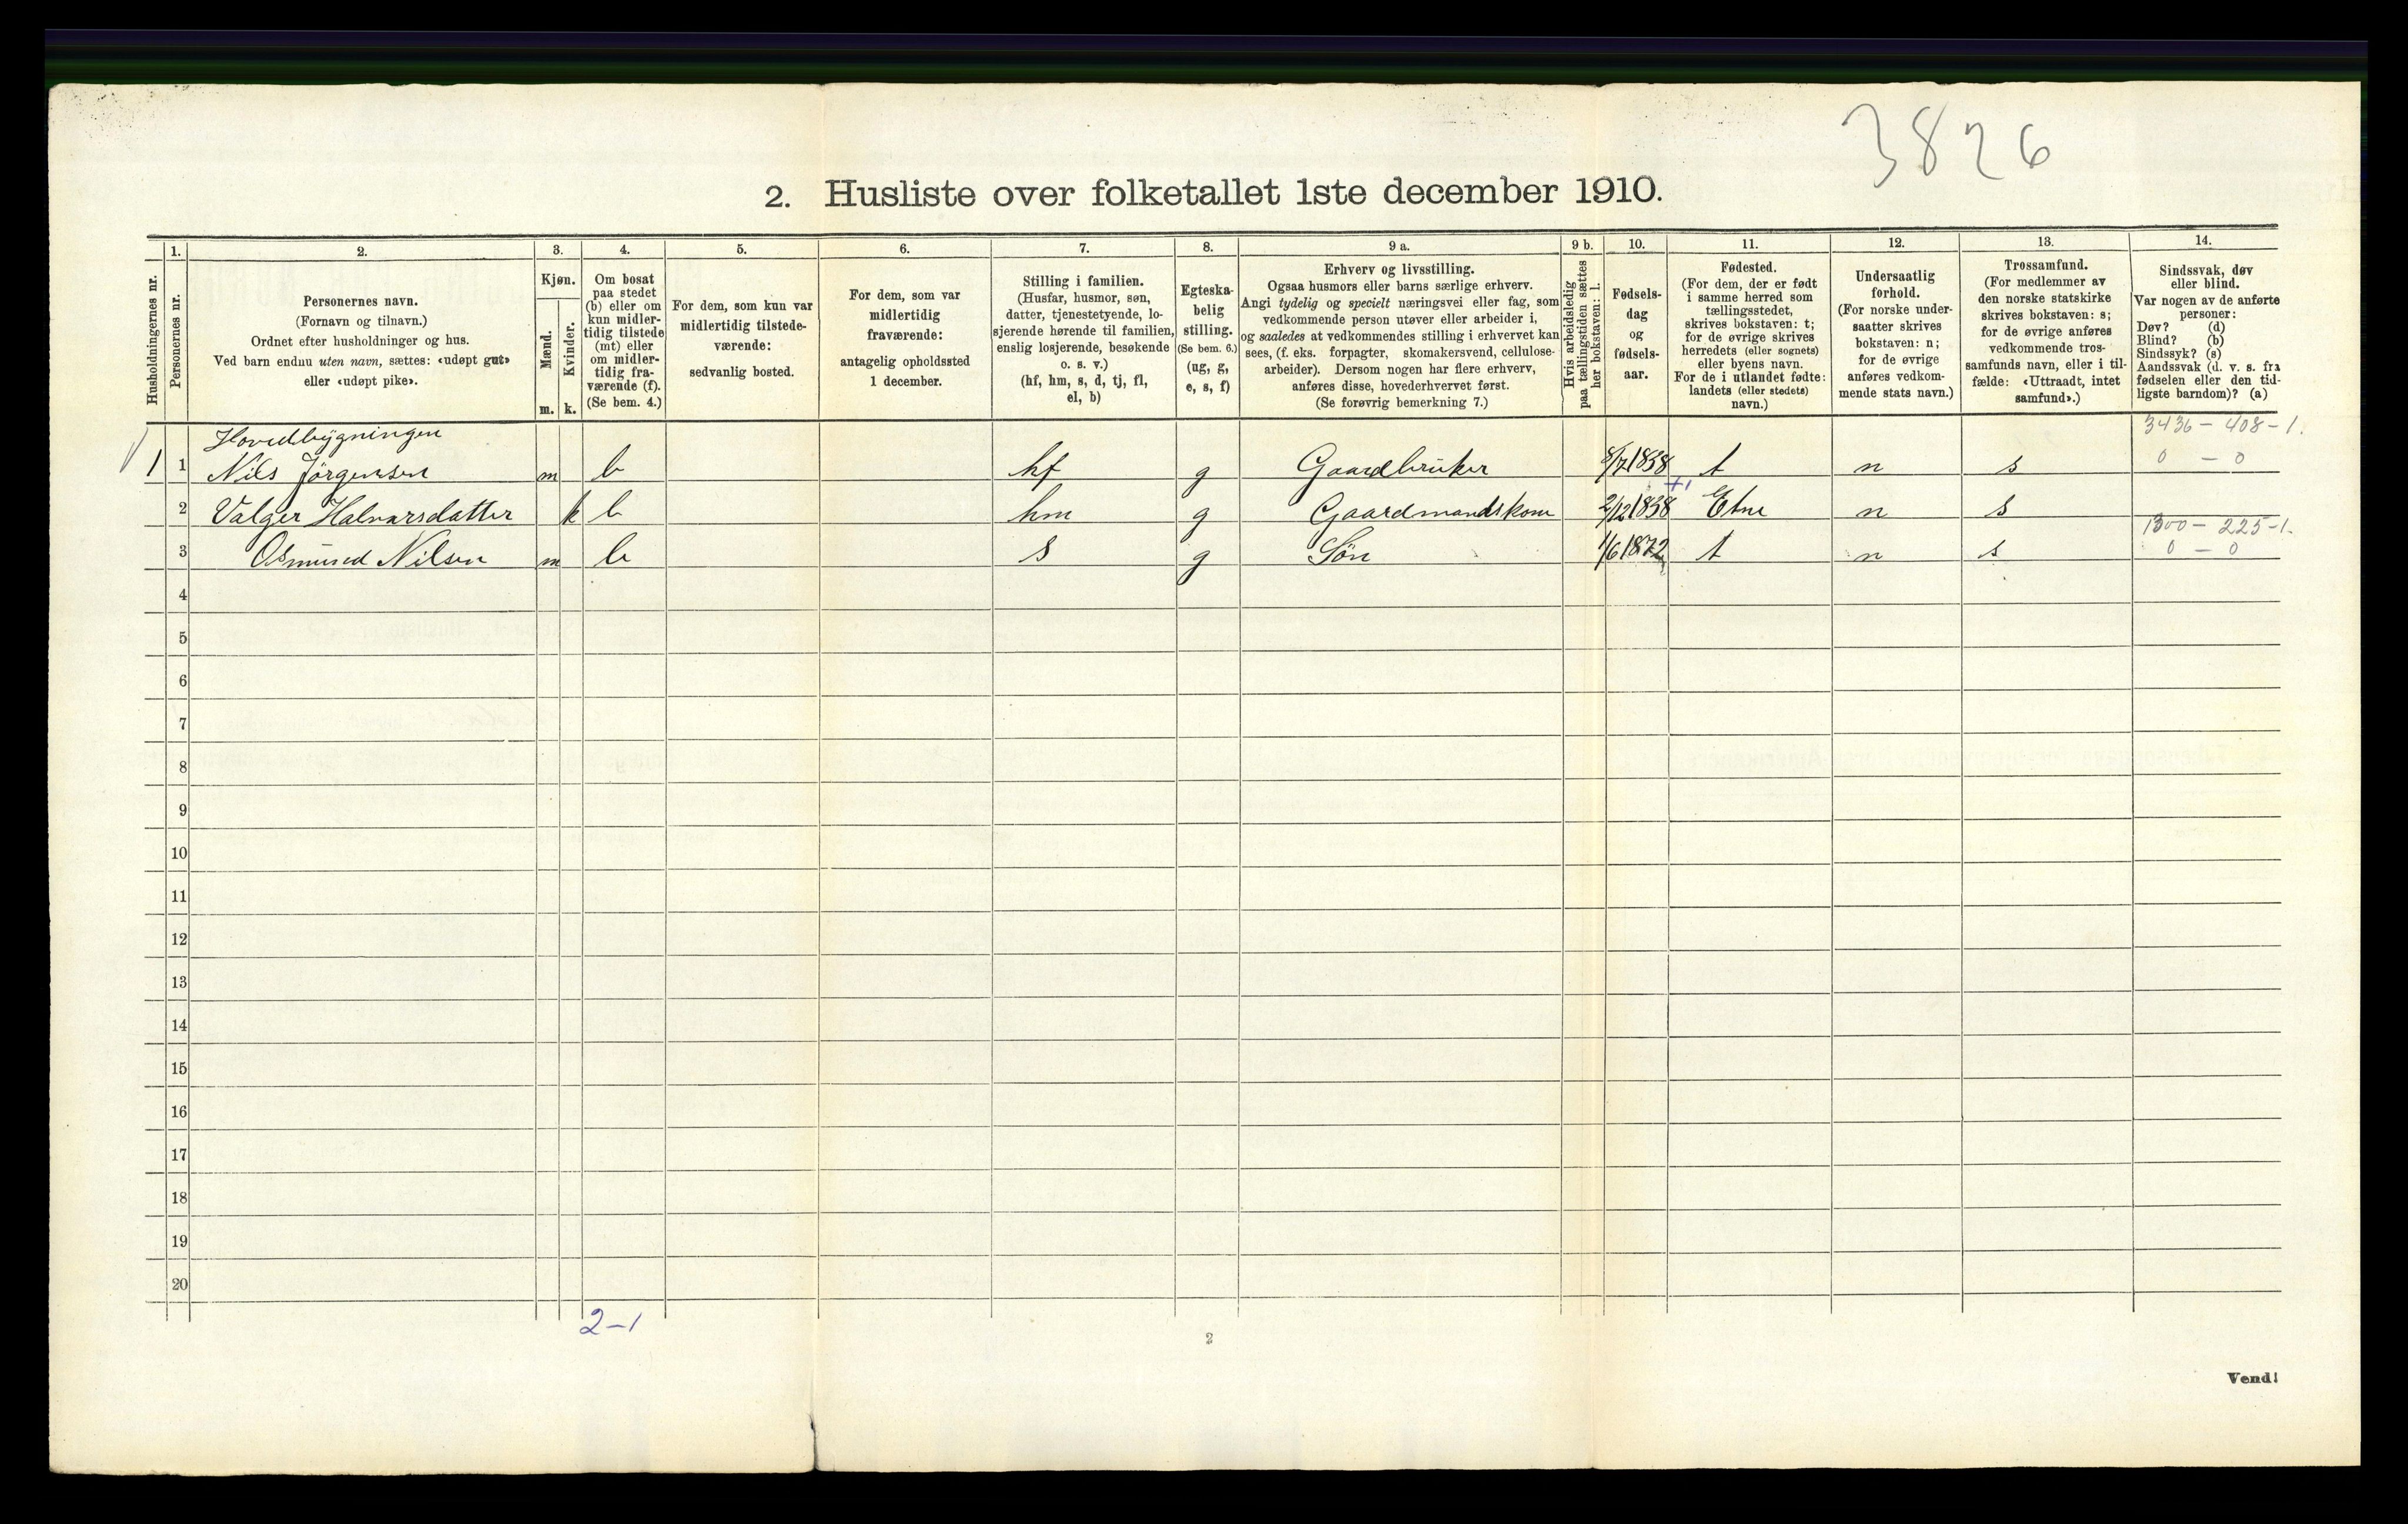 3826
2. Husliste over folketallet 1ste december 1910.
1. 2. 3. 4. 5. 6. 7. 8. 9 a. 9 b. 10. 11. 12. 13. 14.
Husholdningernes nr.
Personernes nr.
Personernes navn.
(Fornavn og tilnavn.)
Ordnet efter husholdninger og hus.
Ved barn endnu uten navn, sættes: «udøpt gut»
eller «udøpt pike».
Kjøn.
Mænd.
Kvinder.
m. k.
Om bosat
paa stedet
(b) eller om
kun midler-
tidig tilstede
(mt) eller
om midler-
tidig fra-
værende (f).
(Se bem. 4.)
For dem, som kun var
midlertidig tilstede-
værende:
sedvanlig bosted.
For dem, som var
midlertidig
fraværende:
antagelig opholdssted
1 december.
Stilling i familien.
(Husfar, husmor, søn,
datter, tjenestetyende, lo-
sjerende hørende til familien,
enslig losjerende, besøkende
o. s. v.)
(hf, hm, s, d, tj, fl,
el, b)
Egteska-
belig
stilling.
(Se bem. 6.)
(ug, g,
e, s, f)
Erhverv og livsstilling.
Ogsaa husmors eller barns særlige erhverv.
Angi tydelig og specielt næringsvei eller fag, som
vedkommende person utøver eller arbeider i,
og saaledes at vedkommendes stilling i erhvervet kan
sees, (f. eks. forpagter, skomakersvend, cellulose-
arbeider). Dersom nogen har flere erhverv,
anføres disse, hovederhvervet først.
(Se forøvrig bemerkning 7.)
Hvis arbeidsledig
paa tællingstiden sættes
her bokstaven: l.
Fødsels-
dag
og
fødsels-
aar.
Fødested.
(For dem, der er født
i samme herred som
tællingsstedet,
skrives bokstaven: t;
for de øvrige skrives
herredets (eller sognets)
eller byens navn.
For de i utlandet fødte:
landets (eller stedets)
navn.)
Undersaatlig
forhold.
(For norske under-
saatter skrives
bokstaven: n;
for de øvrige
anføres vedkom-
mende stats navn.)
Trossamfund.
(For medlemmer av
den norske statskirke
skrives bokstaven: s;
for de øvrige anføres
vedkommende tros-
samfunds navn, eller i til-
fælde: «Uttraadt, intet
samfund».)
Sindssvak, døv
eller blind.
Var nogen av de anførte
personer:
Døv? (d)
Blind? (b)
Sindssyk? (s)
Aandssvak (d. v. s. fra
fødselen eller den tid-
ligste barndom)? (a)
Hovedbygningen 3436 - 408 - 1.
1 1 Nils Jörgensen m b hf g Gaardbruker 8/7 1838 t n s 0 - 0
+1
2 Valger Halvarsdatter k b hm g Gaardmandskone 2/12 1838 Etne n s
1300 - 225 - 1.
3 Osmund Nilsen m b s g Sön 1/6 1872 t n s 0 - 0
4
5
6
7
8
9
10
11
12
13
14
15
16
17
18
19
20
2-1
2
Vend!